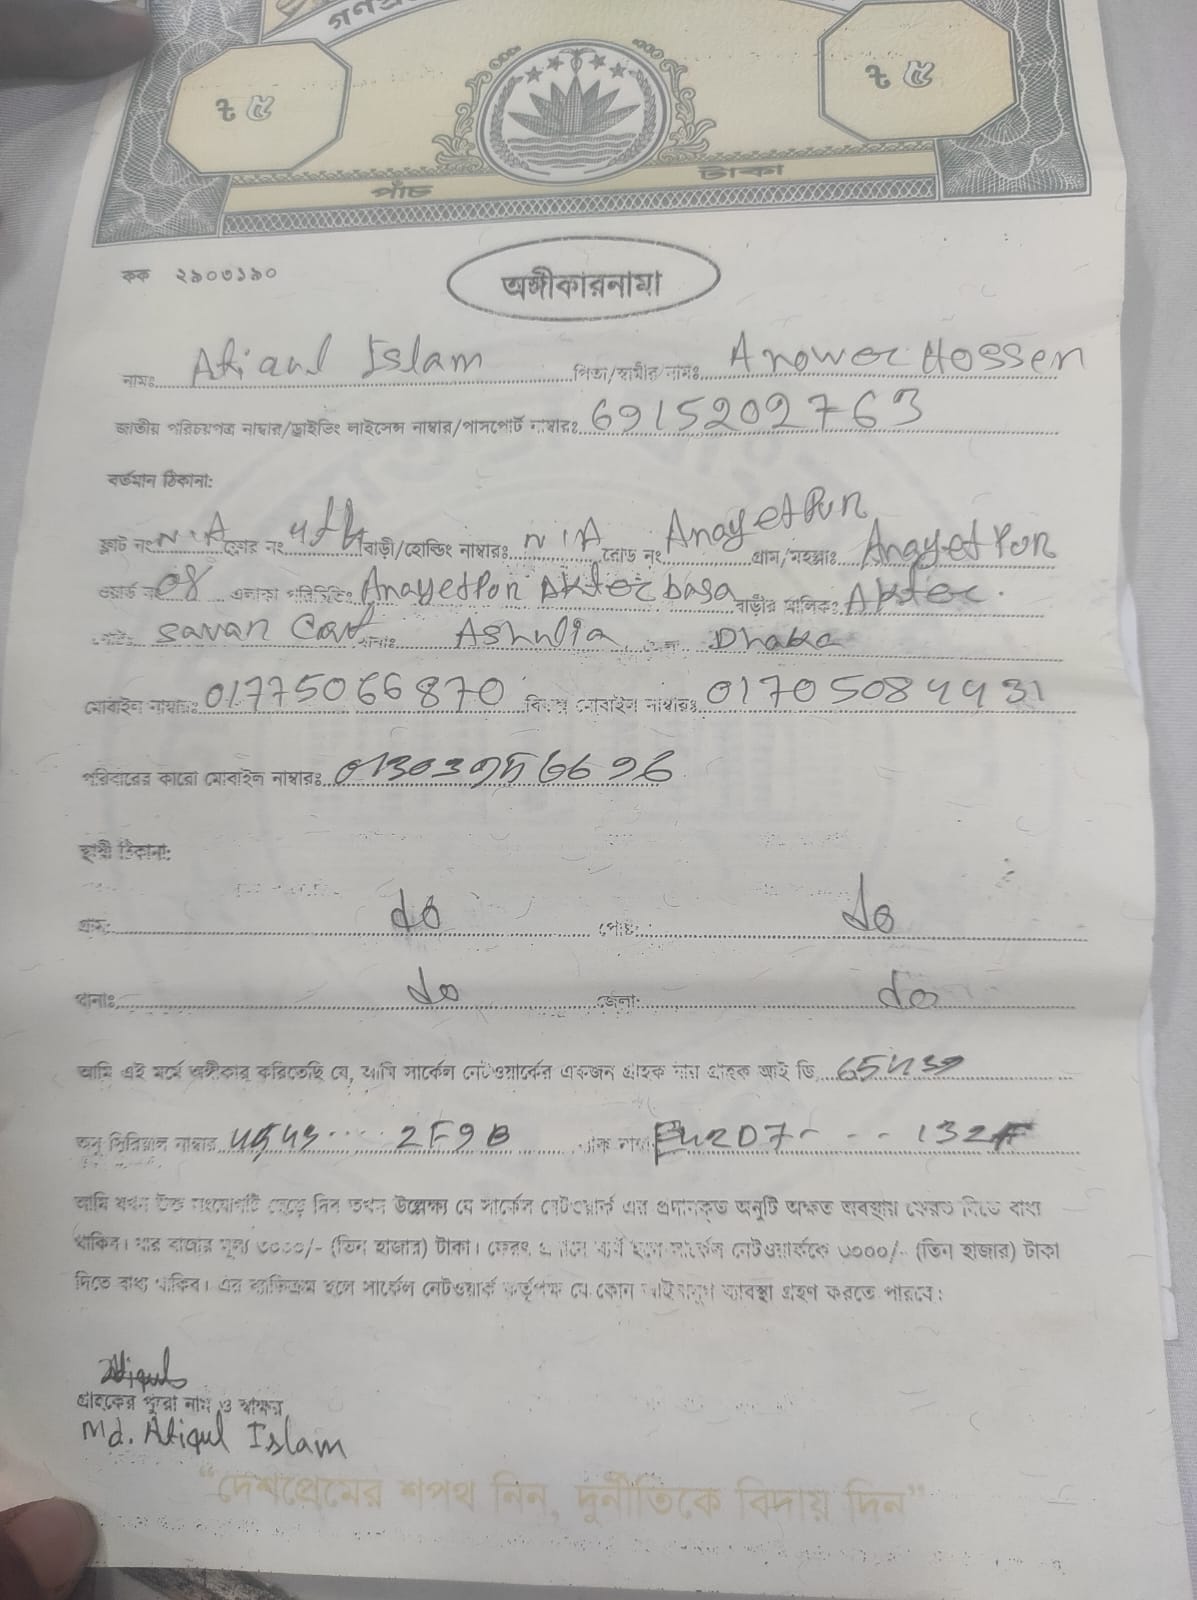 গণপ্র
৳ ৫ ৳ ৫
পাঁচ টাকা
কক ২৯০৩১৯০
অঙ্গীকারনামা
নামঃ Atiqul Islam পিতা/স্বামীর নামঃ Anower Hossen
জাতীয় পরিচয়পত্র নাম্বার/ড্রাইভিং লাইসেন্স নাম্বার/পাসপোর্ট নাম্বারঃ 6915202763
বর্তমান ঠিকানা:
ফ্লাট নং N/A ফ্লোর নং 4th বাড়ী/হোল্ডিং নাম্বারঃ N/A রোড নং Anayetpur গ্রাম/মহল্লাঃ Anayetpur
ওয়ার্ড নং 08 এলাকা পরিচিতিঃ Anayetpur Akter basa বাড়ীর মালিকঃ Akter.
Savar Cant থানাঃ Ashulia Dhaka
মোবাইল নাম্বারঃ 01775066870 বিকল্প মোবাইল নাম্বারঃ 01705084431
পরিবারের কারো মোবাইল নাম্বারঃ
স্থায়ী ঠিকানা:
গ্রাম: do পোষ্ট: do
থানাঃ do জেলা: do
আমি এই মর্মে অঙ্গীকার করিতেছি যে, আমি সার্কেল নেটওয়ার্কের একজন গ্রাহক যার গ্রাহক আই ডি
অনু সিরিয়াল নাম্বার 2F9B 132F
আমি যখন উক্ত সংযোগটি ছেড়ে দিব তখন উল্লেক্ষ্য যে সার্কেল নেটওয়ার্ক এর প্রদানকৃত অনুটি অক্ষত অবস্থায় ফেরত দিতে বাধ্য
থাকিব। যার বাজার মূল্য ৩০০০/- (তিন হাজার) টাকা। ফেরৎ প্রদানে ব্যর্থ হলে সার্কেল নেটওয়ার্ককে ৩০০০/- (তিন হাজার) টাকা
দিতে বাধ্য থাকিব। এর ব্যতিক্রম হলে সার্কেল নেটওয়ার্ক কর্তৃপক্ষ যে কোন আইনানুগ ব্যাবস্থা গ্রহণ করতে পারবে।
Atiqul
গ্রাহকের পুরা নাম ও স্বাক্ষর
Md. Atiqul Islam
“দেশপ্রেমের শপথ নিন, দুর্নীতিকে বিদায় দিন”